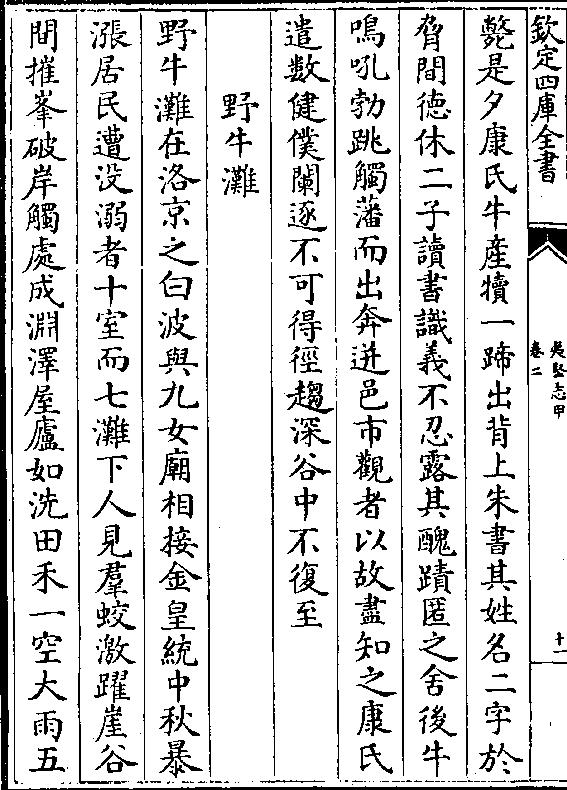 欽定四庫全書
夷堅志甲
卷二
十一
斃是夕康氏牛産犢一蹄出背上朱書其姓名二字於
脅間德休二子讀書識義不忍露其醜蹟匿之舍後牛
鳴吼勃跳觸藩而出奔迸邑市觀者以故盡知之康氏
遣數健僕闌逐不可得徑趨深谷中不復至
野牛灘
野牛灘在洛京之白波與九女廟相接金皇統中秋暴
漲居民遭没溺者十室而七灘下人見羣蛟激躍崖谷
間摧峯破岸觸處成淵澤屋廬如洗田禾一空大雨五